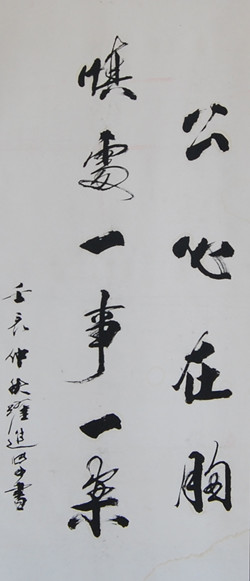 公心在胸
慎處一事一案
壬辰仲秋隆進書